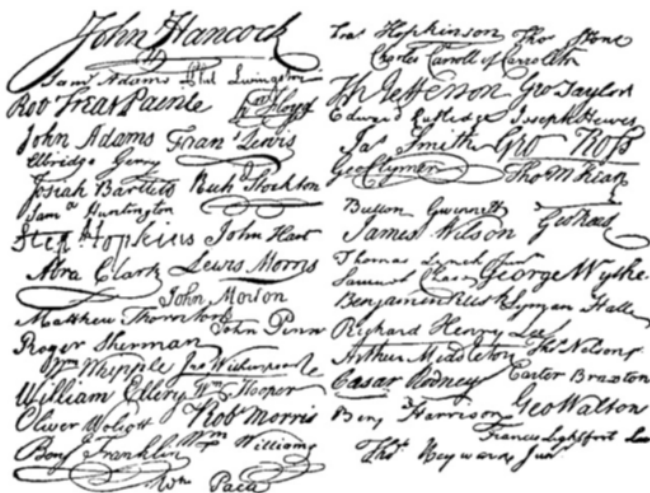 John Hancock
Sam. Adams Phil Livingston
Rob Treat Paine Wm Floyd
John Adams Frans Lewis
Elbridge Gerry
Josiah Bartlett Rich Stockton
Saml Huntington
Step Hopkins John Hart
Abra Clark Lewis Morris
John Morton
Matthew Thornton John Penn
Roger Sherman
Wm Whipple Jno Witherspoon
William Ellery Wm Hooper
Oliver Wolcott Robt Morris
Benj Franklin Wm Williams
Wm Paca
Fras Hopkinson Thos Stone
Charles Carroll of Carrollton
Th Jefferson Geo Taylor
Edward Rutledge Joseph Hewes
Jas Smith Geo Ross
Geo Clymer Tho M Kean
Button Gwinnett
James Wilson Geo Read
Thomas Lynch Junr
Samuel Chase George Wythe
Benjamin Rush Lyman Hall
Richard Henry Lee
Arthur Middleton Thos Nelson jr
Cæsar Rodney Carter Braxton
Benj Harrison Geo Walton
Francis Lightfoot Lee
Thos Heyward Junr